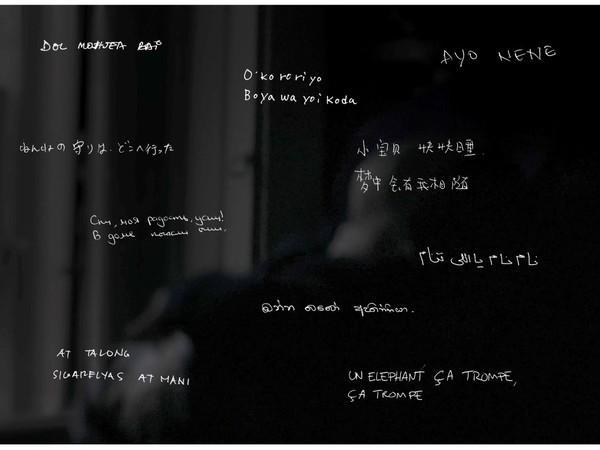 AYO NENE
O'kororiyo
Boya wa yoi koda
ねんねの 守りは どこへ行った
小宝贝 快快睡
梦中会有我相随
Спи, моя радость, усни!
В доме погасли огни.
نام نام يا اللي تنام
AT TALONG
SIGARELYAS AT MANI
UN ELEPHANT ÇA TROMPE,
ÇA TROMPE